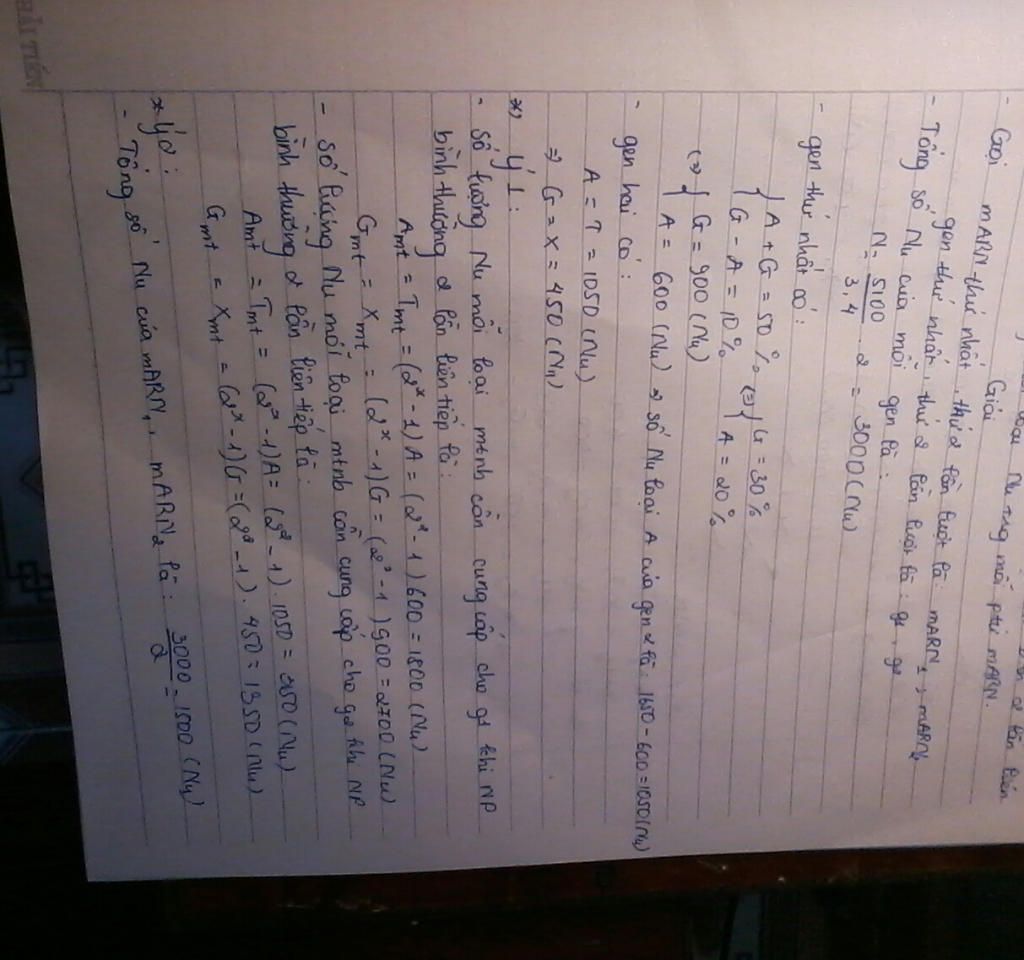 loại Nu trog mỗi ptử mARN.
Giải
- Gọi mARN thứ nhất, thứ 2 lần lượt là: mARN1, mARN2
gen thứ nhất, thứ 2 lần lượt là: g1, g2
- Tổng số Nu của mỗi gen là:
N = 5100 / 3,4 . 2 = 3000 (Nu)
- gen thứ nhất có:
{ A + G = 50 % (=) { G = 30 %
{ G - A = 10 % { A = 20 %
(=) { G = 900 (Nu)
{ A = 600 (Nu) => số Nu loại A của gen 2 là: 1650 - 600 = 1050 (Nu)
- gen hai có:
A = T = 1050 (Nu)
=> G = X = 450 (Nu)
*) Ý 1:
- số lượng Nu mỗi loại mtnb cần cung cấp cho g1 khi NP
bình thường 2 lần liên tiếp là:
Amt = Tmt = (2^x - 1) A = (2^2 - 1) 600 = 1800 (Nu)
Gmt = Xmt = (2^x - 1) G = (2^2 - 1) 900 = 2700 (Nu)
- số lượng Nu mỗi loại mtnb cần cung cấp cho g2 khi NP
bình thường 2 lần liên tiếp là:
Amt = Tmt = (2^x - 1) A = (2^2 - 1) . 1050 = (Nu)
Gmt = Xmt = (2^x - 1) G = (2^2 - 1) . 450 = 1350 (Nu)
* Ý 2:
- Tổng số Nu của mARN1, mARN2 là: 3000 / 2 = 1500 (Nu)
HẢI TIẾN